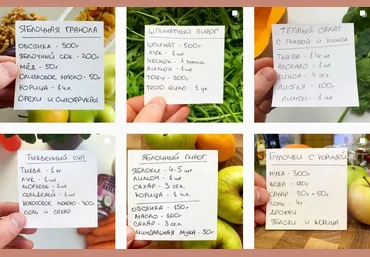 ЯБЛОЧНАЯ ГРАНОЛА
ОВСЯНКА - 500г
ЯБЛОЧНЫЙ СОК - 200г
МЁД - 50г
ОЛИВКОВОЕ МАСЛО - 50г
КОРИЦА - 1 ч.л.
ОРЕХИ И СУХОФРУКТЫ
ШПИНАТНЫЙ ПИРОГ
ШПИНАТ - 500г
ЛУК - 1 шт
ЧЕСНОК - 1
ЛИМОН - 1 шт
ТОФУ - 200г
ТЕСТО ФИЛО - 1 уп
ТЕПЛЫЙ САЛАТ
С ТЫКВОЙ И КИНОА
ТЫКВА - 1/4 шт
АВОКАДО - 1 шт
КИНОА - 4 сл.
ЛИСТЬЯ - 100г
ЛИМОН - 1 шт
ТЫКВЕННЫЙ СУП
ТЫКВА - 1 кг
ЛУК - 1 шт
МОРКОВЬ - 1 шт
СЕЛЬДЕРЕЙ - 1 шт
КОКОСОВОЕ МОЛОКО - 400г
СОЛЬ И САХАР
ЯБЛОЧНЫЙ ПИРОГ
ЯБЛОКИ - 4-5 шт
ЛИМОН - 1 шт
САХАР - 3 сл.
КОРИЦА - 1 ч.л.
ОВСЯНКА - 150г
МАСЛО - 100г
САХАР - 3 сл.
МИНДАЛЬНАЯ МУКА - 50г
БУЛОЧКИ С КОРИЦЕЙ
МУКА - 300г
ВОДА - 120г
САХАР - 50г + 50г
СОЛЬ - 4г
ДРОЖЖИ
ЯБЛОКИ И КОРИЦА